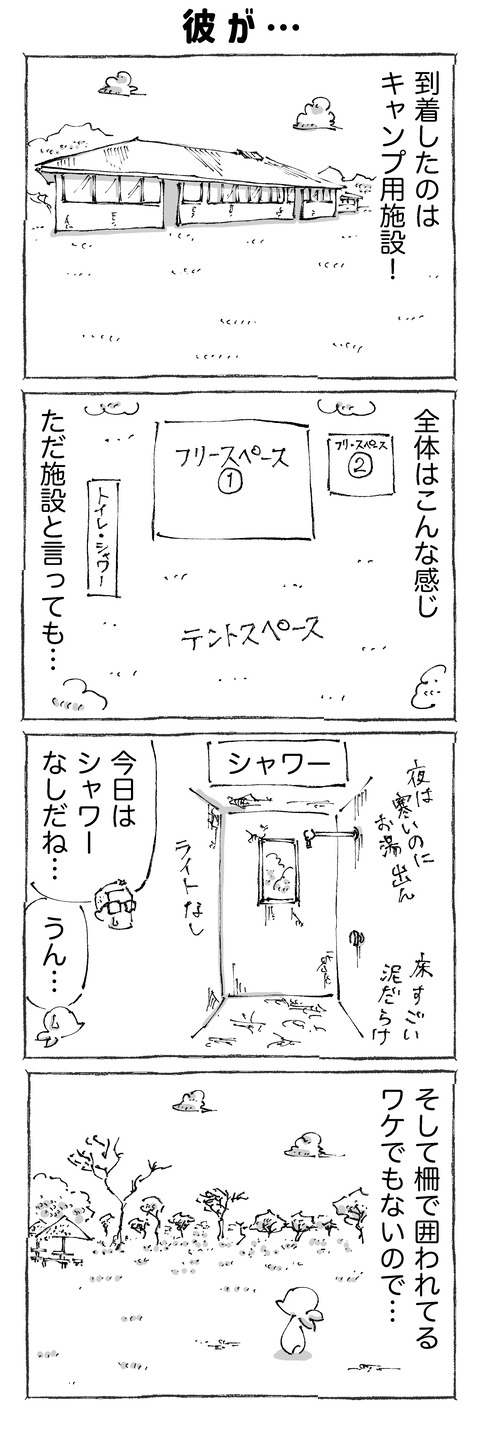 彼が…
到着したのは
キャンプ用施設！
全体はこんな感じ
フリースペース
②
フリースペース
①
トイレ・シャワー
テントスペース
ただ施設と言っても…
シャワー
夜は
寒いのに
お湯出ん
床すごい
泥だらけ
ライトなし
今日は
シャワー
なしだね…
うん…
そして柵で囲われてる
ワケでもないので…